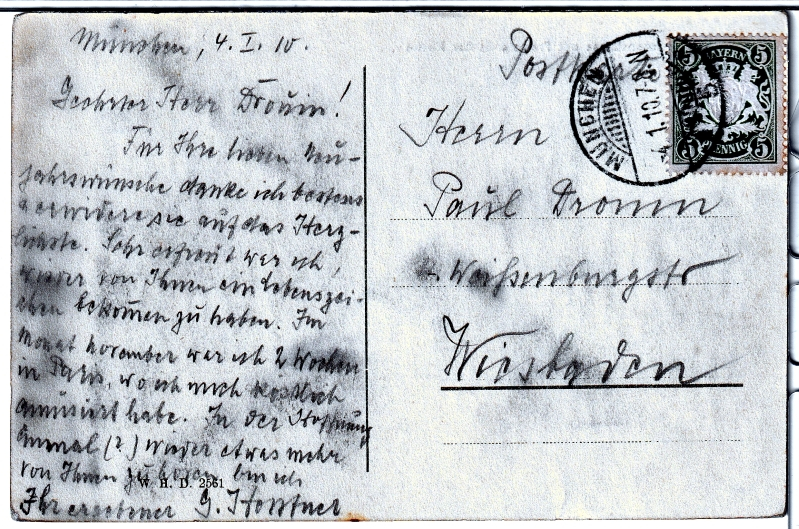 München, 4. I. 10.
Geehrter Herr Drouin!
Für Ihre lieben Neu-
jahrswünsche danke ich bestens
u erwidere sie auf das Herz-
lichste. Sehr erfreut war ich,
wieder von Ihnen ein Lebenszei-
chen bekommen zu haben. Im
Monat November war ich 2 Wochen
in Paris, wo ich mich köstlich
amüsiert habe. In der Hoffnung
einmal (?) wieder etwas mehr
von Ihnen zu hören bin ich
Ihr ergebener G. Horstner
W. H. D. 2561
Postkarte
Herrn
Paul Drouin
Weißenburgstr
Wiesbaden
MÜNCHEN
4.1.10.7-8.N
BAYERN
5 5
5 5
PFENNIG